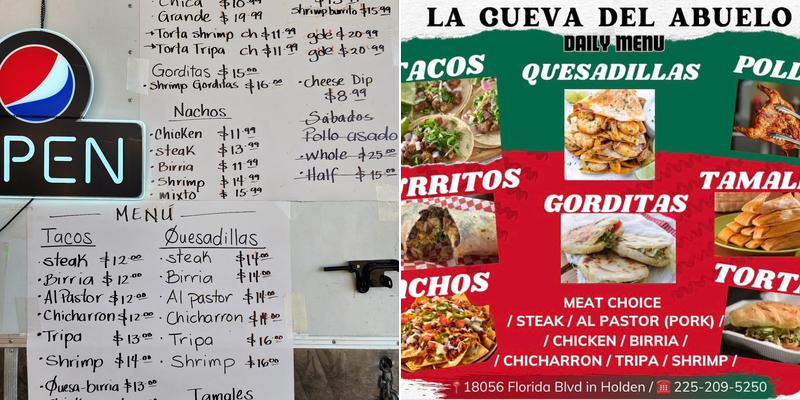 Chica $16.99
Grande $19.99
Torta shrimp ch $11.99 gde $20.99
Torta Tripa ch $11.99 gde $20.99
Gorditas $15.00
Shrimp Gorditas $16.00
Nachos
Chicken $11.99
steak $13.99
Birria $11.99
Shrimp $14.99
mixto $15.99
shrimp burrito $15.99
cheese Dip
$8.99
Sabados
Pollo asado
Whole $25.00
Half $15.00
PEN
MENÚ
Tacos
steak $12.00
Birria $12.00
Al Pastor $12.00
Chicharron $12.00
Tripa $13.00
Shrimp $14.00
Quesa-birria $13.00
Quesadillas
steak $14.00
Birria $14.00
Al pastor $14.00
Chicharron
Tripa $16.00
Shrimp $16.00
Tamales
LA CUEVA DEL ABUELO
DAILY MENU
TACOS
QUESADILLAS
POLL
RRITOS
GORDITAS
TAMAL
CHOS
TORTA
MEAT CHOICE
/ STEAK / AL PASTOR (PORK) /
/ CHICKEN / BIRRIA /
/ CHICHARRON / TRIPA / SHRIMP /
18056 Florida Blvd in Holden / 225-209-5250